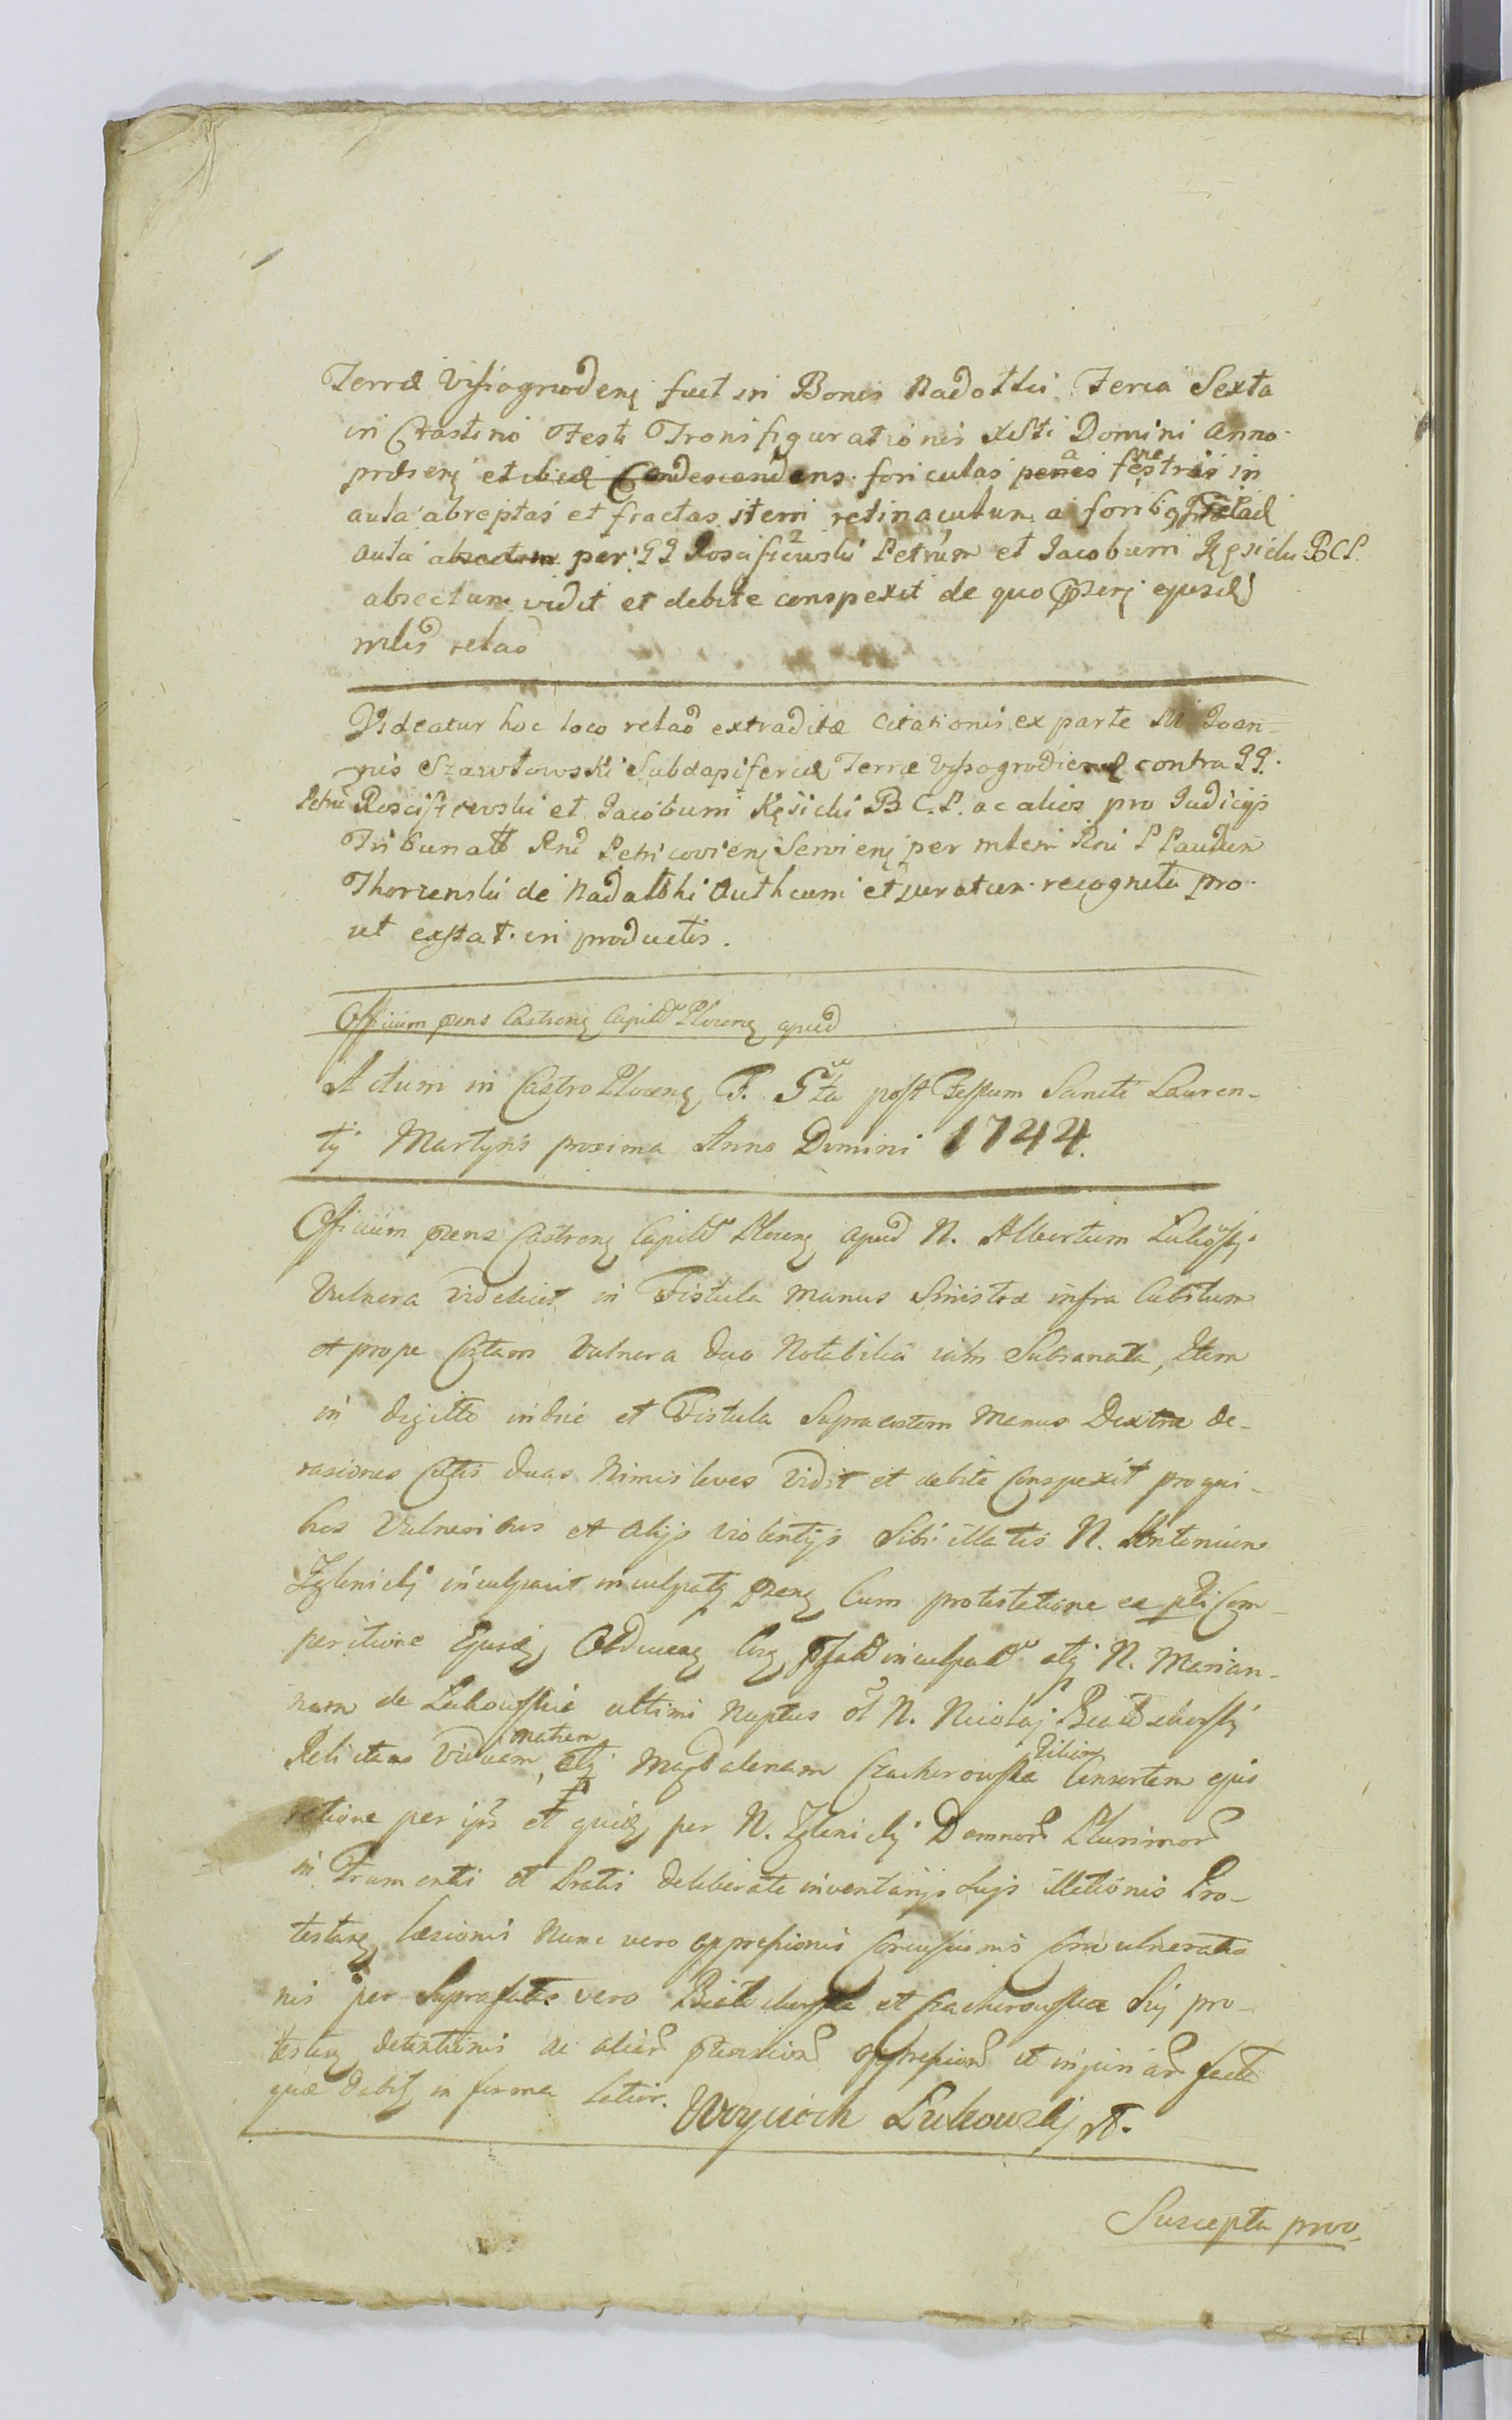 Terræ Vissogrodenę fuit in Bonis Radotki Feria Sexta
in Crastino Festi Transfigurationis Xsti Domini Anno
præsenę et ibidę Condescendens foriculas penes fenestras in
aula abreptas et fractas item retinaculum a foribg
aula absectum per GG Rosciszewski Petrum et Jacobum Kęsicki B C P.
absectum vidit et debite conspexit de quo præsenę ejusdę
mlis relaõ
Videatur hoc loco relaõ extraditæ Citationis ex parte M Joan-
nis Szawłowski Subdapiferidę Terræ Vyssogrodienę contra GG.
Petrũ Rosciszewski et Jacobum Kęsicki B C. P. ac alios pro Judicijs
Tribunałł Rnĩ Petricovienę Servienę per mlem Rni P Laudum
Thorzenski de Nadałki Authcum et juratum recognita pro
ut exstat in productis.
Officium præns Castrenę Capitł Plocenę apud
Actum in Castro Plocenę F. 5ta post Festum Sancti Lauren-
tij Martyris proxima Anno Domini 1744.
Officium præns Castrenę Capitł Plocenę apud N. Albertum Lukowski
Vulnera videlicet in Fistula manus Sinistræ infra Cubitum
et prope Costam Vulnera duo Notabilia iam Subsanata, Item
in digitto indice et Fistula Supra eostem Manus Dextræ de-
rasiones Cutis duas Nimis leves vidit et debite Conspexit pro qui-
bus Vulneribus et alijs violentijs Sibi illatis N. Antonium
Zglenicky inculpavit inculpatę præsenę Cum protestatione ex pti Com-
paritione Ejusdę Obducenę Ctra præfatũ inculpatũ atq N. Marian-
nam de Lukowskie ultimi Nuptus olĩ N. Nicolaj
Relictam Viduam, matrem atq Magdalenam Czacherowska Filiam Consortem ejus
ratione per ipũ et quidę per N. Zglenicky Damnorũ Plurimorũ
in Frumentis et Pratis deliberate inventarijs Sujs illationis Pro-
testanę læsionis Nunc vero oppressionis Concussionis Convulneratio
nis per Suprafatas vero et Czacherowska Sui pro-
testanę detentionis ac aliarũ præmissorũ oppressionũ et injuriarũ facta
quæ dabit in forma latior. Woyciech Lukowski A.
Suscepta prov.